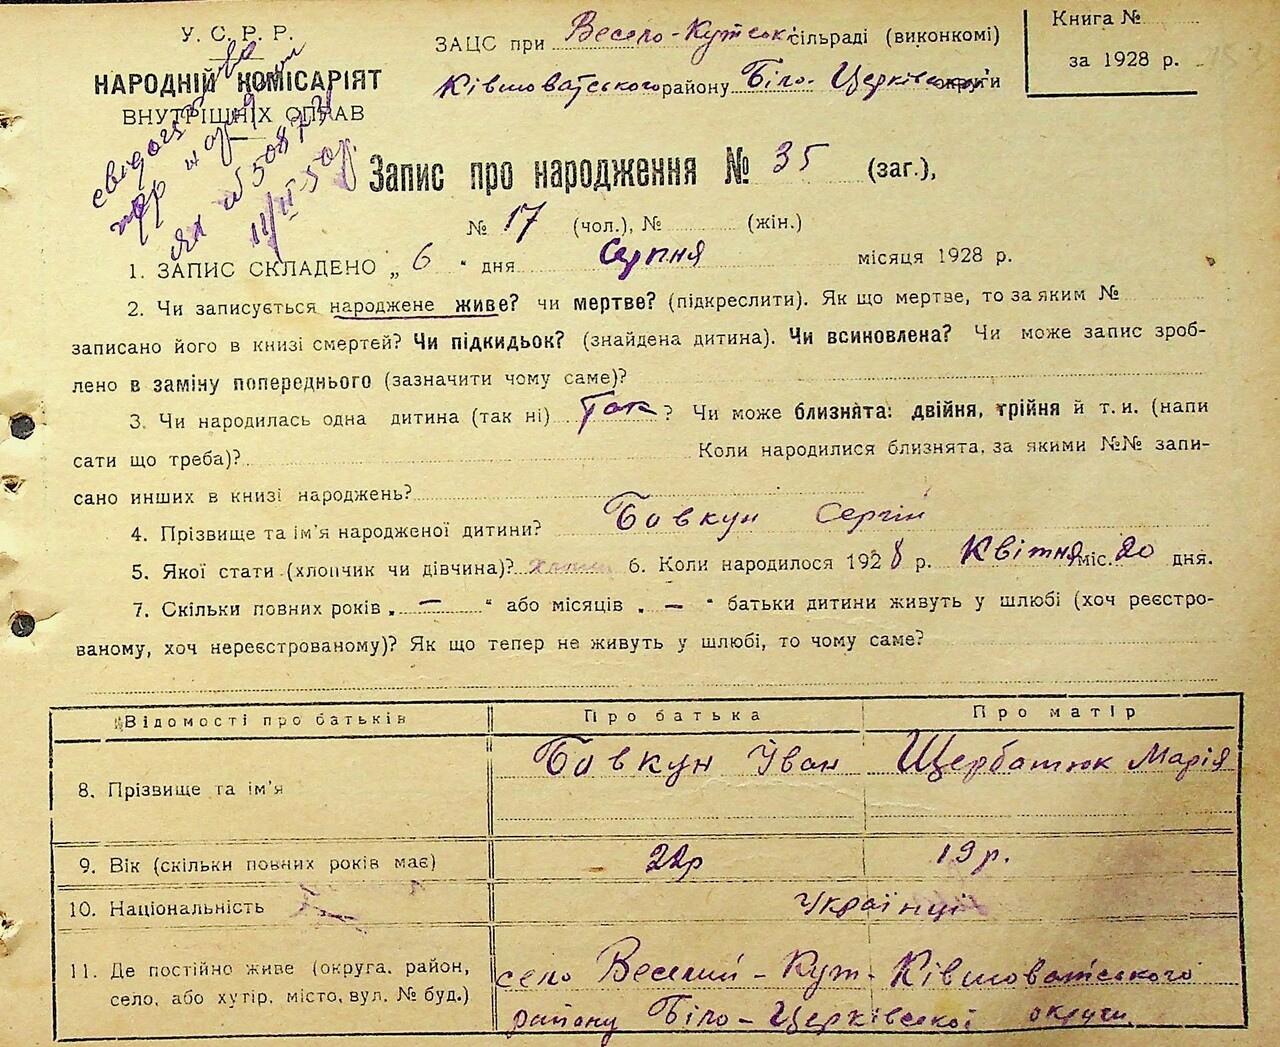 У. С. Р. Р.
НАРОДНІЙ КОМІСАРІЯТ
ВНУТРІШНІХ СПРАВ
ЗАЦС при Весело-Кутськ сільраді (виконкомі)
Ківшоватського району Біло-Церківськ округи
Книга №
за 1928 р.
Запис про народження № 35 (заг.),
№ 17 (чол.), № (жін.)
1. ЗАПИС СКЛАДЕНО „ 6 " дня Серпня місяця 1928 р.
2. Чи записується народжене живе? чи мертве? (підкреслити). Як що мертве, то за яким №
записано його в книзі смертей? Чи підкидьок? (знайдена дитина). Чи всиновлена? Чи може запис зроб-
лено в заміну попереднього (зазначити чому саме)?
3. Чи народилась одна дитина (так ні) Так ? Чи може близнята: двійня, трійня й т. и. (напи
сати що треба)? Коли народилися близнята, за якими №№ запи-
сано инших в книзі народжень?
4. Прізвище та ім'я народженої дитини? Бовкун Сергій
5. Якої стати (хлопчик чи дівчина)? 6. Коли народилося 1928 р. Квітня міс. 20 дня.
7. Скільки повних років „ — " або місяців „ — " батьки дитини живуть у шлюбі (хоч реєстро-
ваному, хоч нереєстрованому)? Як що тепер не живуть у шлюбі, то чому саме?
Відомості про батьків Про батька Про матір
8. Прізвище та ім'я Бовкун Іван Щербатюк Марія
9. Вік (скільки повних років має) 22р 19 р.
10. Національність Українці
11. Де постійно живе (округа, район,
село, або хутір, місто, вул. № буд.)
село Веселий-Кут-Ківшоватського
району Біло-Церківської округи